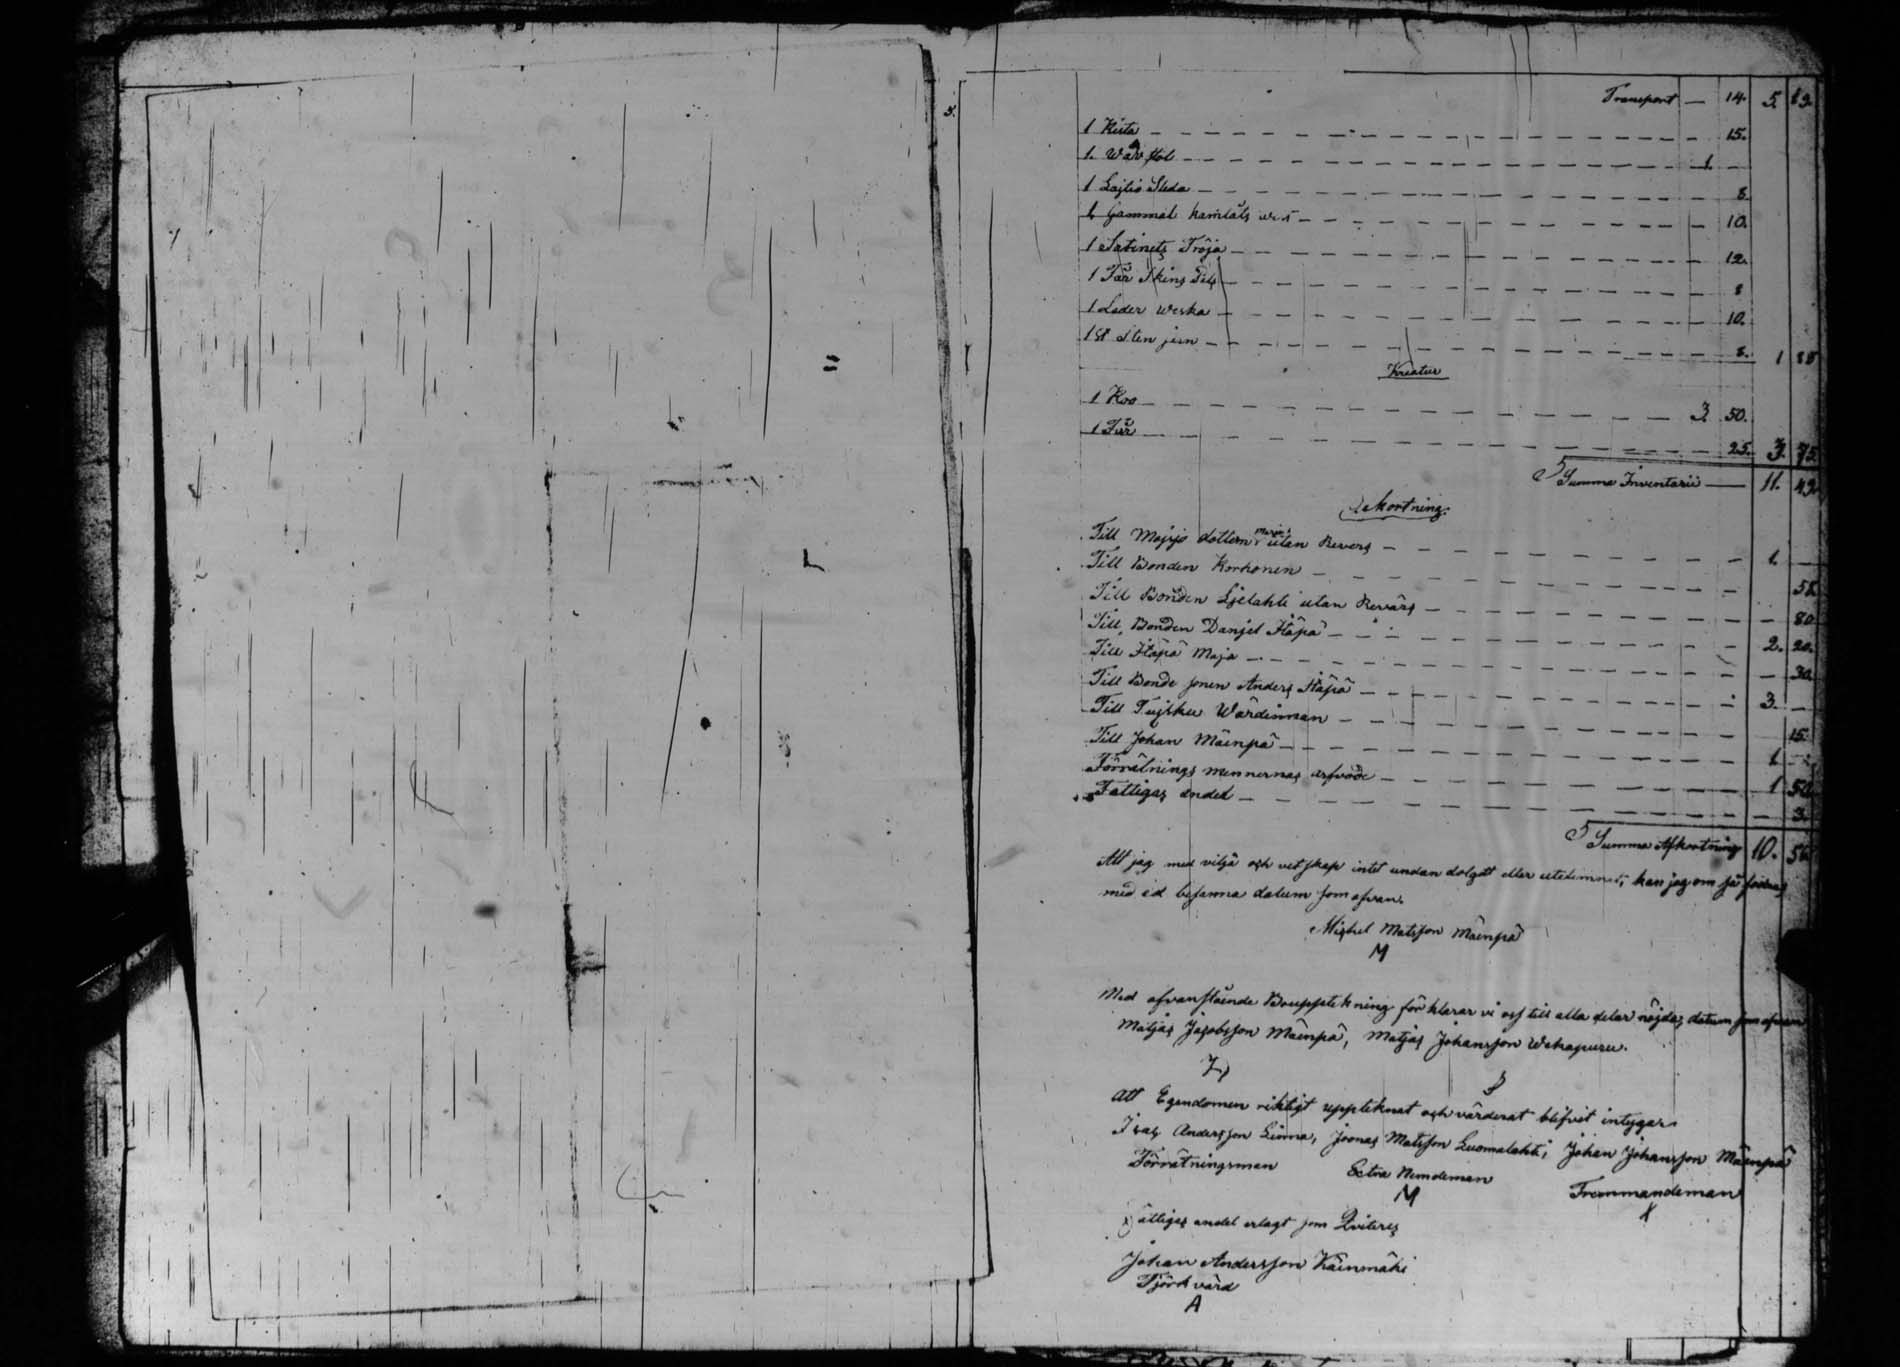 5.
Transport — 14. 5. 69.
1 Kista — 15.
1. Wäfstol — 1. —
1 Lajtio Släda — 8
1 Gammal kamlåts — 10.
1 Satinets Tröja — 12.
1 Får Skins Fäls — 8
1 Läder Weska — 10.
1 ℔ Sten jern — 8. 1 85
Kreatur
1 Koo — 3. 50.
1 Får — 25. 3. 75.
Summa Inventarii — 11. 49.
Afkortning.
Till Mojsjo dottern Maja utan Revers — 1. —
Till Bonden Korhonen — 58
Till Bonden Ljelahti utan Revärs — 80
Till Bonden Danjel Häpä — 2. 20.
Till Häpä Maja — 30.
Till Bonde sonen Anders Häpä — 3. —
Till Tujsku Wärdinnan — 15.
Till Johan Mäenpä — 1 —
Förrätnings mennernas arfvode — 1 50
Fattigas andel — 3.
Summa Afkortning 10. 56
Att jag med vilja och vetskap intet undan dolgdt eller utelemnat, kan jag om så fodras
med ed besanna datum som ofvan.
Michel Matsson Mäenpä
M
Med ofvanstående Bouppteckning förklarar vi oss till alla delar nöjda, datum som ofvan
Matjas Jacobsson Mäenpä, Matjas Johansson Wehapuru.
Att Egendomen riktigt upptecknat och värderat blifvit intygar
Isac Andersson Linna, Joonas Matsson Luomalahti, Johan Johansson Mäenpä
Förrätningsman Extra Nemdeman Fremmandeman
M X
Fattigas andel erlagt som Qviteres
Johan Andersson Käinmäki
Fjördvärd
A